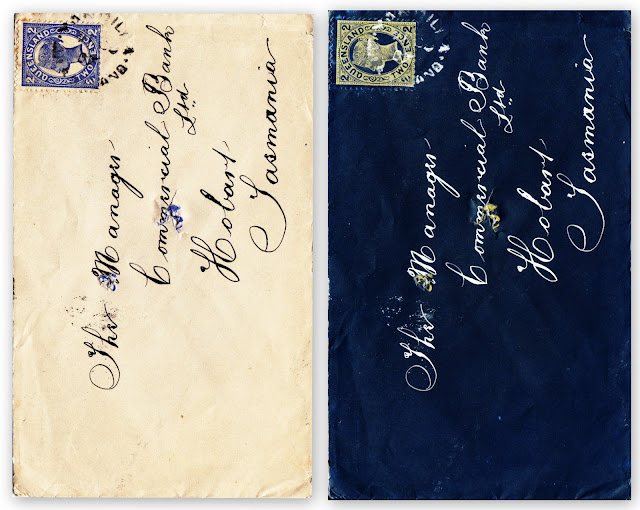 2 2
QUEENSLAND
TWO PENCE
2 2
The Manager
Commercial Bank
Ltd
Hobart
Tasmania
2 2
QUEENSLAND
TWO PENCE
2 2
The Manager
Commercial Bank
Ltd
Hobart
Tasmania